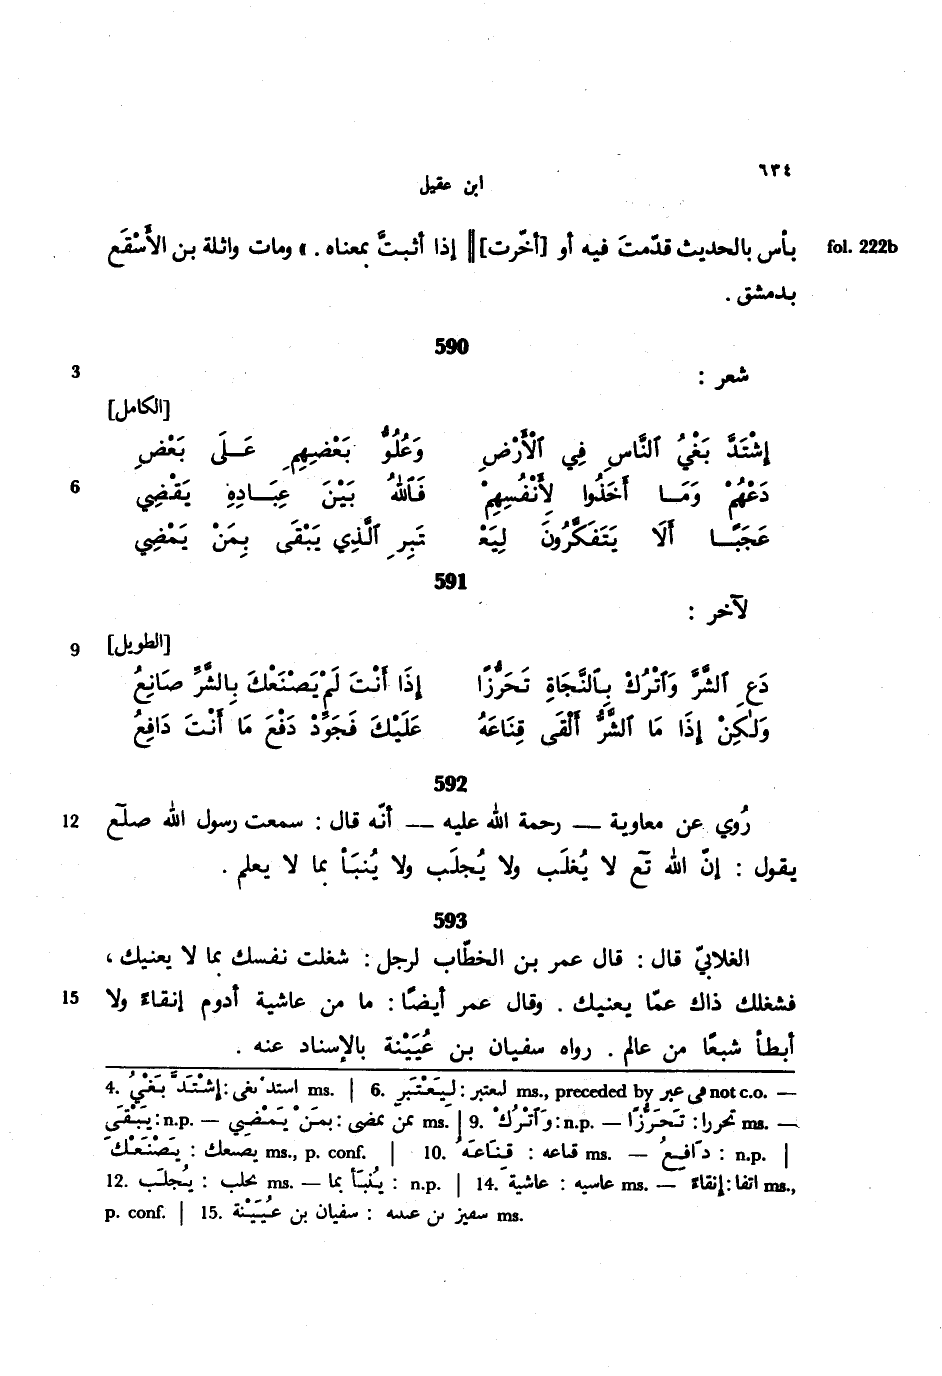 ٦٣٤
ابن عقيل
بأس بالحديث قدّمتَ فيه أو [أخّرت]|| إذا أثبتَّ بمعناه . » ومات واثلة بن الأَسْقَع
fol. 222b
بدمشق .
590
3
شعر :
[الكامل]
إِشْتَدَّ بَغْيُ ٱلنَّاسِ فِي ٱلْأَرْضِ وَعُلُوُّ بَعْضِهِمِ عَلَى بَعْضِ
6
دَعْهُمْ وَمَا أَخَذُوا لِأَنْفُسِهِمْ فَٱللهُ بَيْنَ عِبَادِهِ يَقْضِي
عَجَبًا أَلَا يَتَفَكَّرُونَ لِيَعْ تَبِرِ ٱلَّذِي يَبْقَى بِمَنْ يَمْضِي
591
لآخر :
9
[الطويل]
دَعِ ٱلشَّرَّ وَٱتْرُكْ بِٱلنَّجَاةِ تَحَرُّزًا إِذَا أَنْتَ لَمْ يَصْنَعْكَ بِالشَّرِّ صَانِعُ
وَلٰكِنْ إِذَا مَا ٱلشَّرُّ أَلْقَى قِنَاعَهُ عَلَيْكَ فَجَوِّدْ دَفْعَ مَا أَنْتَ دَافِعُ
592
12
رُوي عن معاوية — رحمة الله عليه — أنّه قال : سمعت رسول الله صلّع
يقول : إنّ الله تع لا يُغلَب ولا يُجلَب ولا يُنبَأ بما لا يعلم .
593
الغلابيّ قال : قال عمر بن الخطّاب لرجل : شغلت نفسك بما لا يعنيك ،
15
فشغلك ذاك عمّا يعنيك . وقال عمر أيضًا : ما من عاشية أدوم إنقاءً ولا
أبطأ شبعًا من عالم . رواه سفيان بن عُيَيْنة بالإسناد عنه .
4. إِشْتَدَّ بَغْيُ : استد بغى ms. | 6. لِيَعْتَبِرِ : لىعتبر ms., preceded by فى عبر not c.o. —
يَبْقَى : n.p. — بِمَنْ يَمْضِي : عمن عضى ms. | 9. وَٱتْرُكْ : n.p. — تَحَرُّزًا : تحررا ms. —
يَصْنَعْكَ : يصىعك ms., p. conf. | 10. قِنَاعَهُ : قىاعه ms. — دَافِعُ : n.p. |
12. يُجلَب : تحلب ms. — يُنبَأ بما : n.p. | 14. عاشية : عاسيه ms. — إنقاءً : اتفا ms.,
p. conf. | 15. سفيان بن عُيَيْنة : سفيز ىن عىىىه ms.